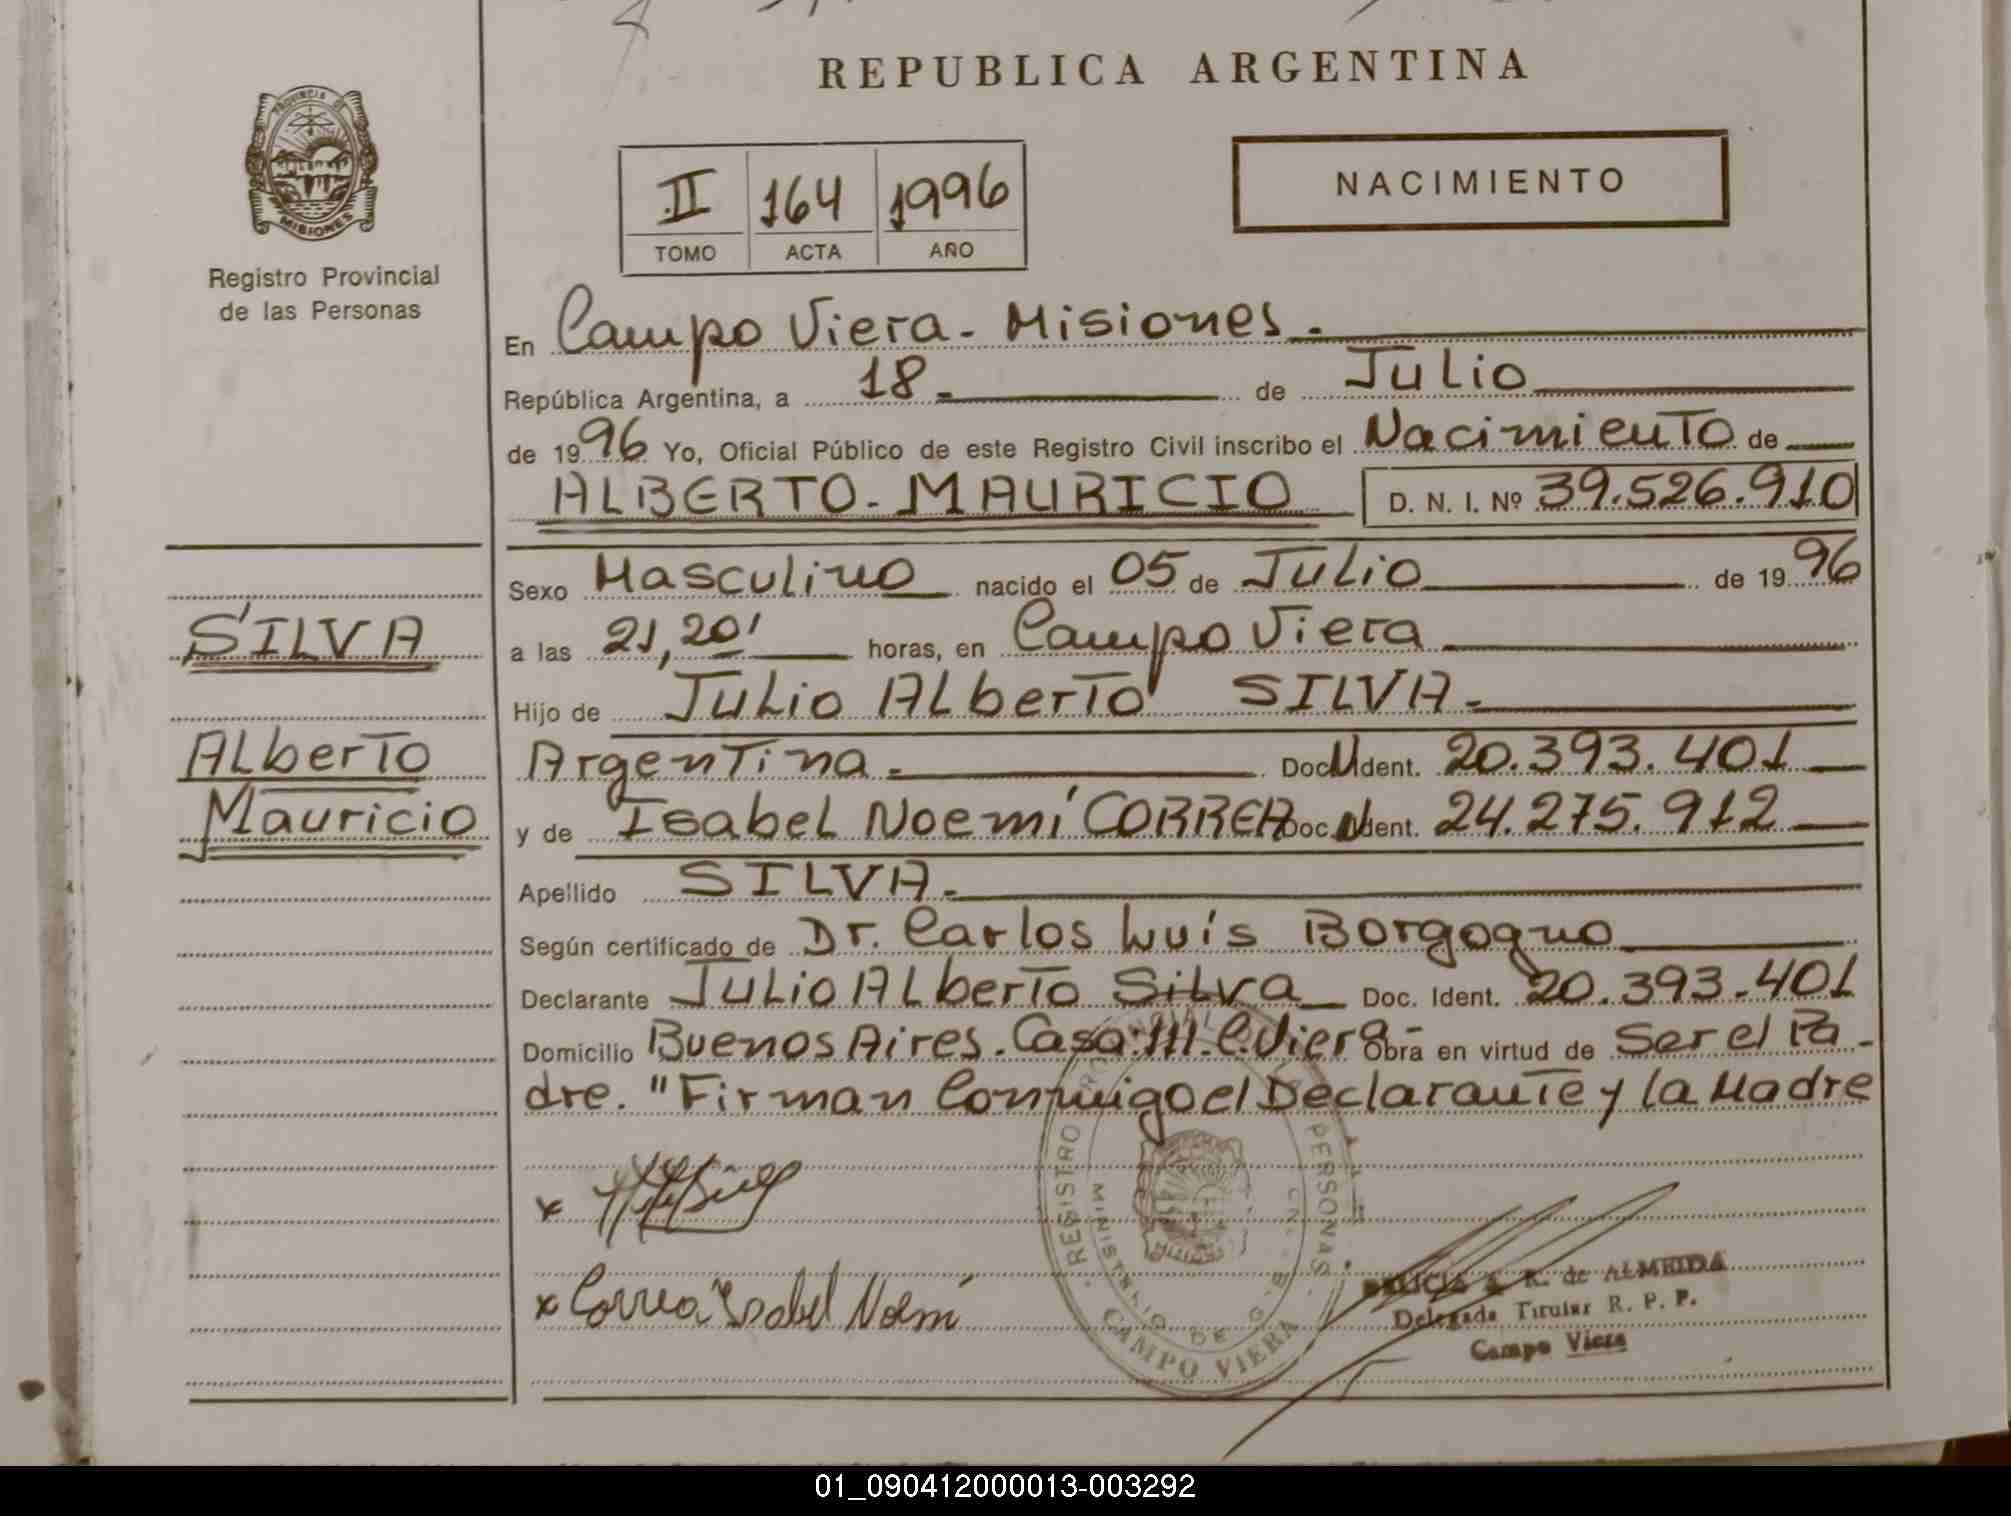 REPUBLICA ARGENTINA
PROVINCIA DE
MISIONES
Registro Provincial
de las Personas
II 164 1996
TOMO ACTA AÑO
NACIMIENTO
En Campo Viera - Misiones.
República Argentina, a 18 de Julio
de 1996 Yo, Oficial Público de este Registro Civil inscribo el Nacimiento de
ALBERTO - MAURICIO D. N. I. Nº 39.526.910
Sexo Masculino nacido el 05 de Julio de 1996
a las 21,20' horas, en Campo Viera
Hijo de Julio Alberto SILVA.
Argentina Doc. Ident. 20.393.401
y de Isabel Noemí CORREA Doc. Ident. 24.275.912
Apellido SILVA.
Según certificado de Dr. Carlos Luís Borgogno
Declarante Julio Alberto Silva Doc. Ident. 20.393.401
Domicilio Buenos Aires. Casa: 111. C. Viera - Obra en virtud de Ser el Pa-
dre. "Firman Conmigo el Declarante y la Madre
SILVA
Alberto
Mauricio
x
x Correa Isabel Noemí
REGISTRO PROVINCIAL PERSONAS
MINISTERIO DE G.
CAMPO VIERA
MISIONES
R. de ALMEIDA
Delegada Titular R. P. P.
Campo Viera
01_090412000013-003292